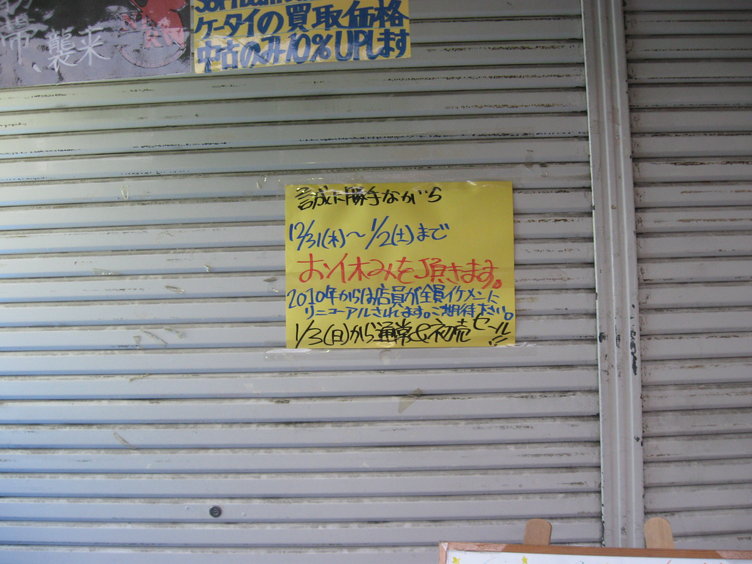 襲来
ケータイの買取価格
中古のみ10%UPします
誠に勝手ながら
12/31(木)〜1/2(土)まで
お休みを頂きます。
2010年からは店員が全員イケメンに
リニューアルされてます。ご期待下さい。
1/3(日)から通常&初売セール!!